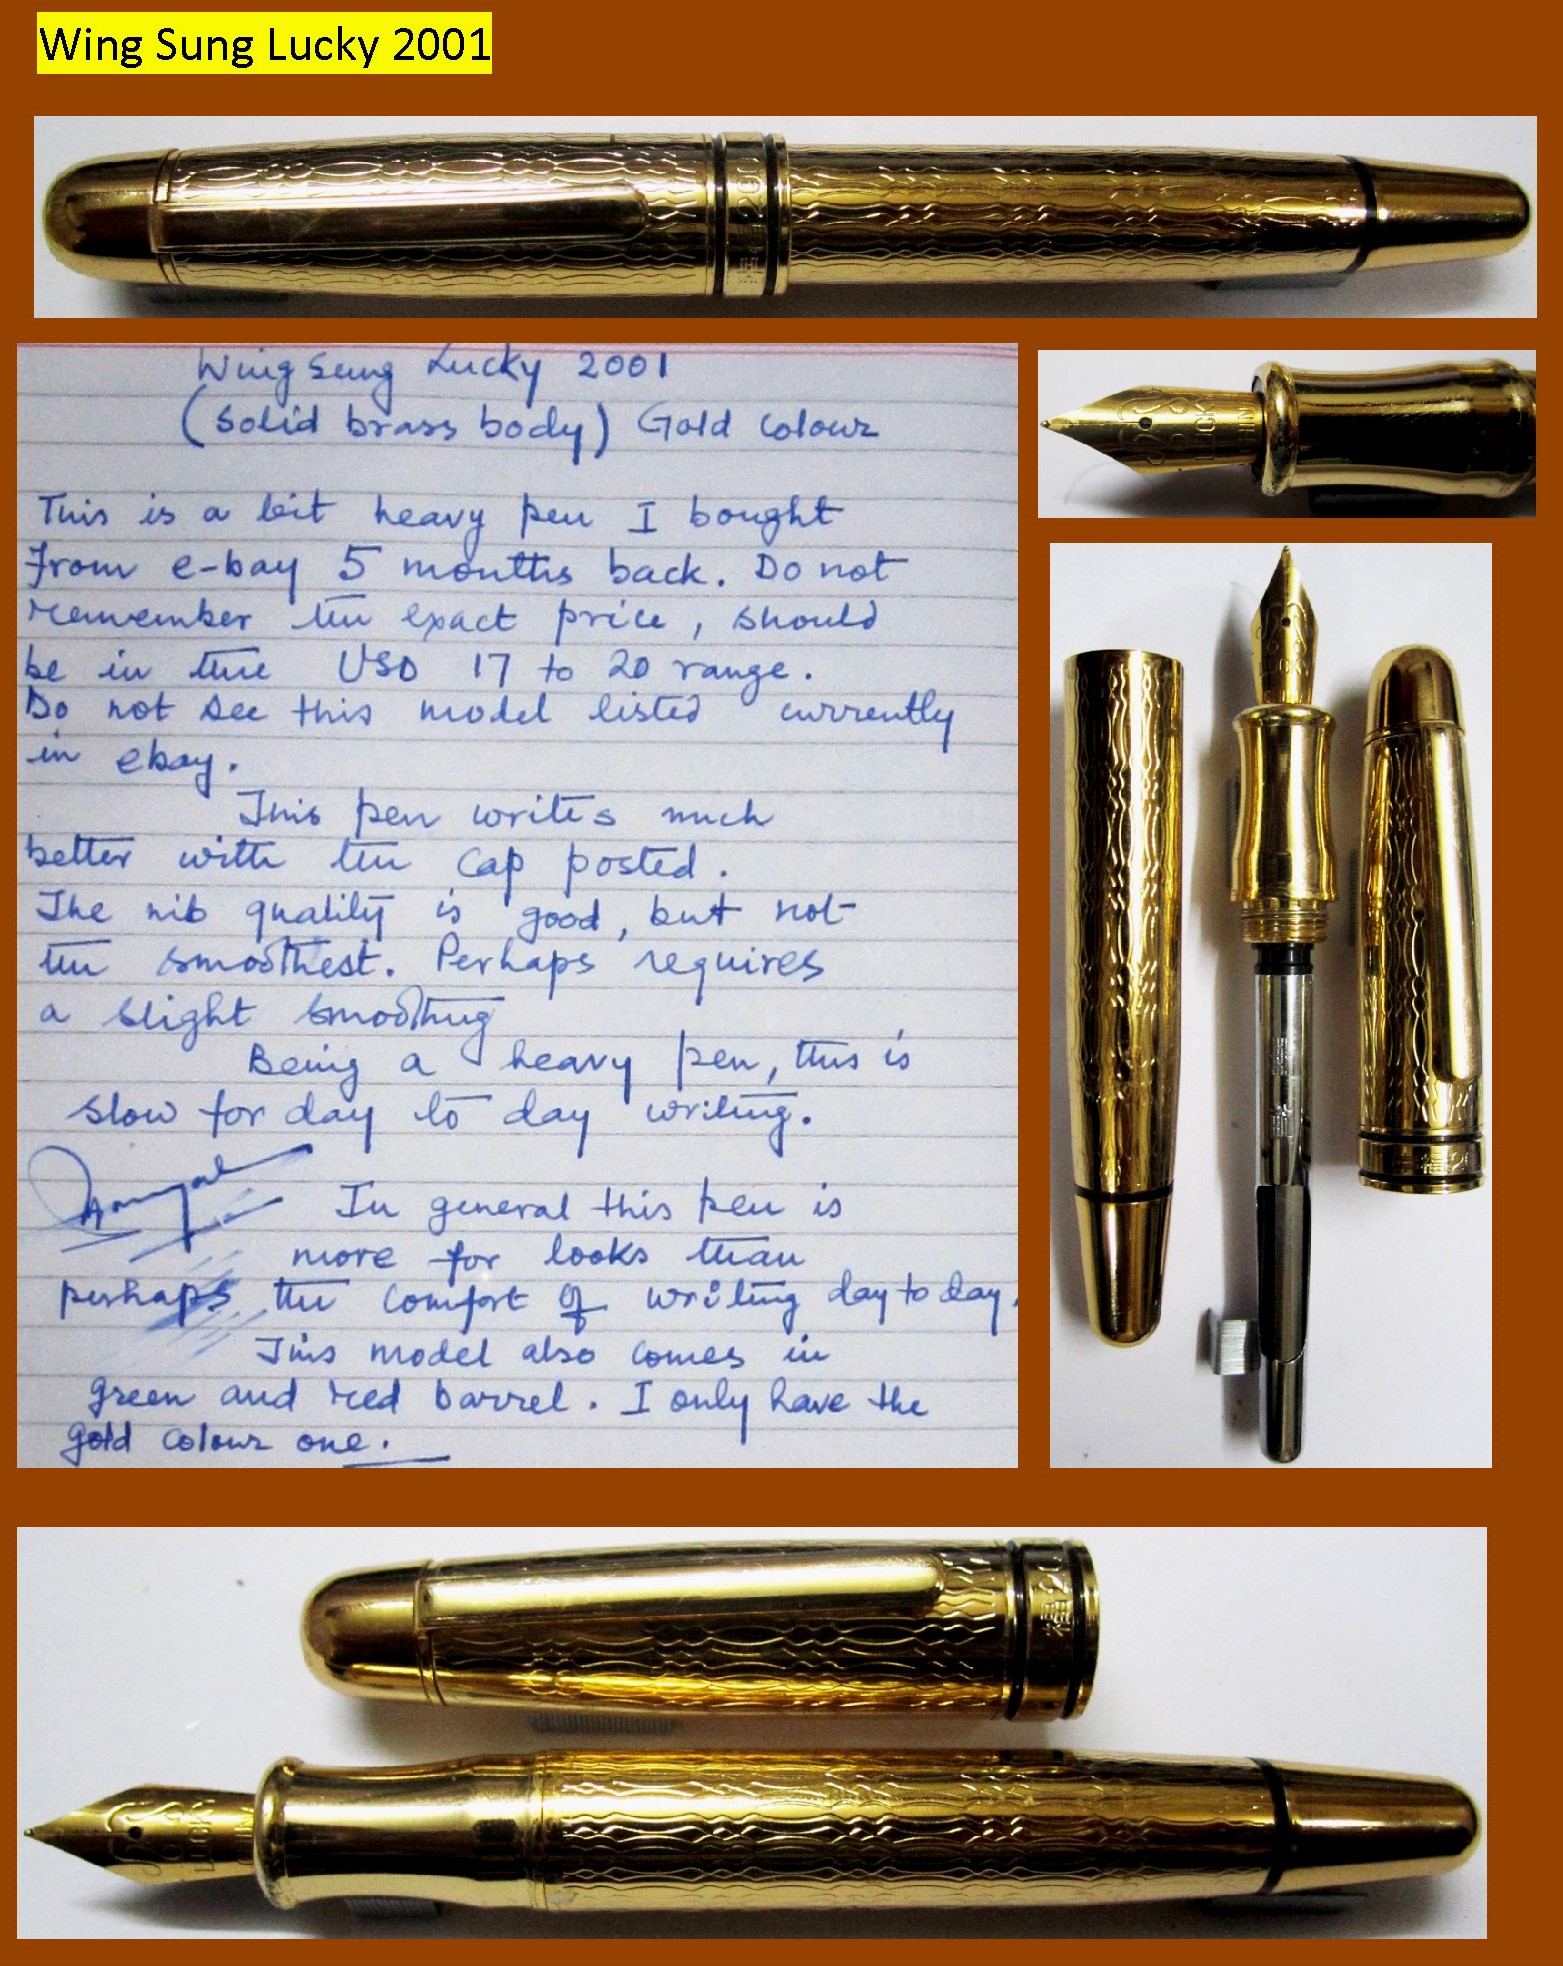 Wing Sung Lucky 2001
Wing Sung Lucky 2001
(Solid brass body) Gold Colour
This is a bit heavy pen I bought
from e-bay 5 months back. Do not
remember the exact price, should
be in the USD 17 to 20 range.
Do not see this model listed currently
in ebay.
This pen writes much
better with the cap posted.
The nib quality is good, but not
the smoothest. Perhaps requires
a slight smoothing
Being a heavy pen, this is
slow for day to day writing.
In general this pen is
more for looks than
perhaps the comfort of writing day to day.
This model also comes in
green and red barrel. I only have the
gold colour one.
LUCK
LUCK
福 20